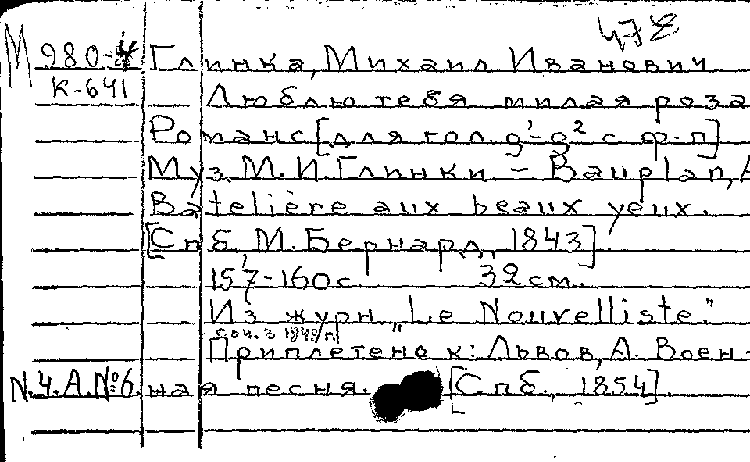 472
М 980-4 Глинка, Михаил Иванович
К-641
Люблю тебя милая роза
Романс [для гол. g¹-g² с ф-п]
Муз. М. И. Глинки - Bauplan, A
Batelière aux beaux yeux.
[Спб. М. Бернард, 1843].
157-160 с. 32 см.
Из журн. „Le Nouvelliste."
Приплетено к: Львов, А. Воен-
N.4.A.№6. ная песня. [Спб., 1854].